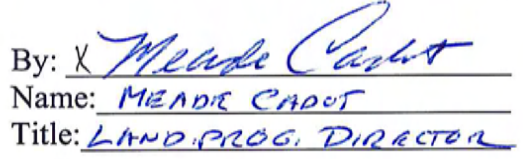 By: X Meade Cadot
Name: MEADE CADOT
Title: LAND PROG. DIRECTOR